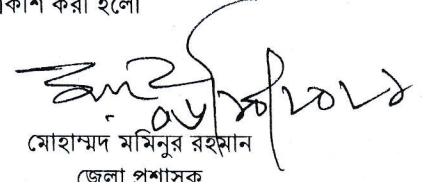 কাশ করা হলো
০৮/১০/২০২১
মোহাম্মদ মমিনুর রহমান
জেলা প্রশাসক